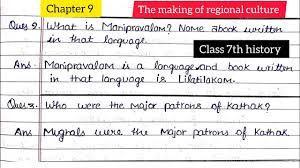 Chapter 9
The making of regional culture
Ques 2. What is Manipravalam? Name a book written
in that language.
Class 7th history
Ans. Manipravalam is a language and book written
in that language is Lilatilakam.
Ques 3. Who were the major patrons of Kathak?
Ans Mughals were the Major patrons of Kathak